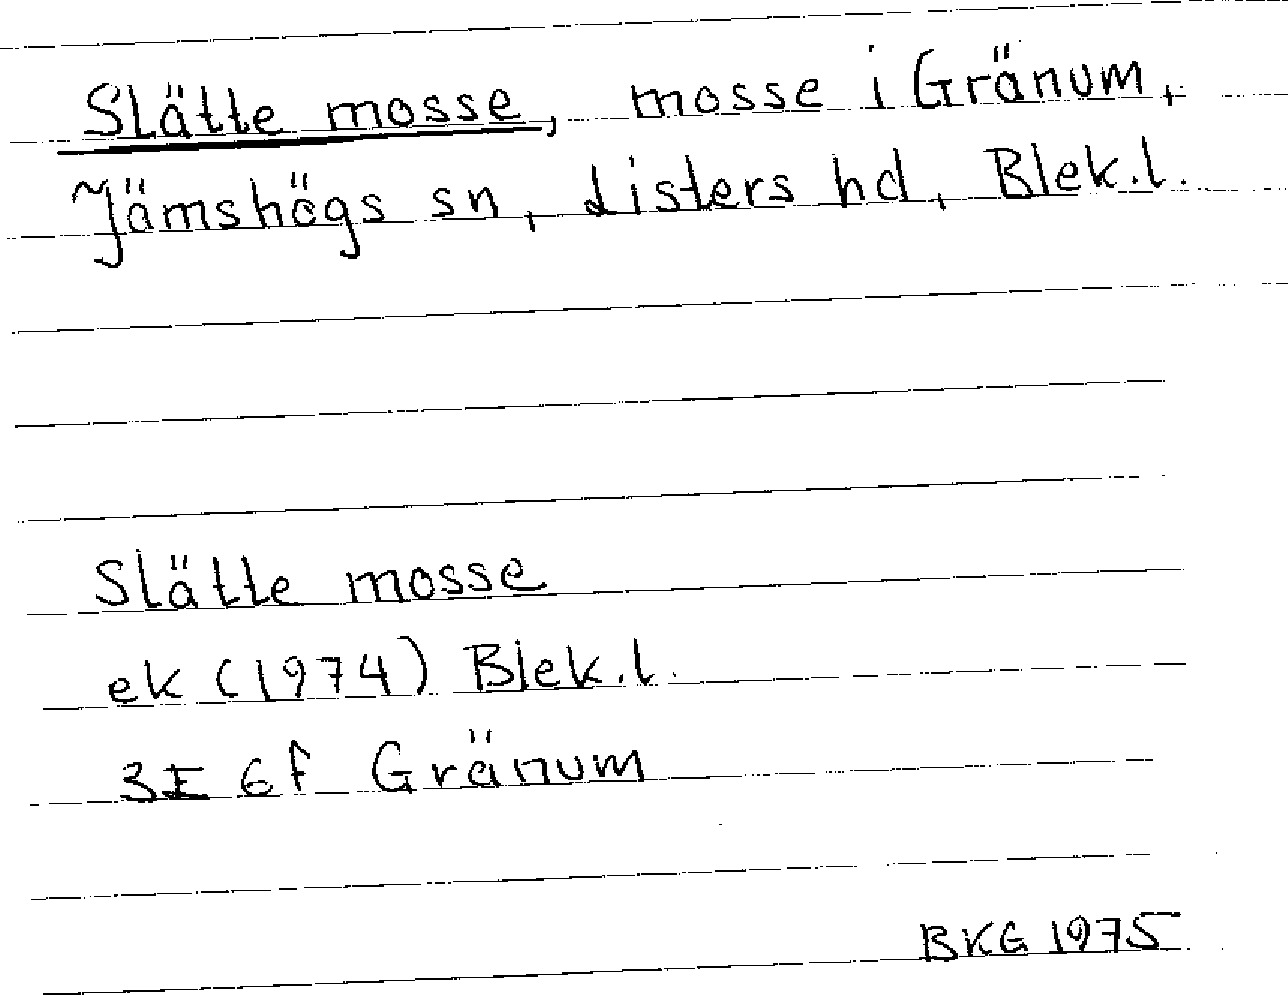 Slätte mosse, mosse i Gränum,
Jämshögs sn, Listers hd, Blek.l.
Slätte mosse
ek (1974) Blek.l.
3E 6f Gränum
BKG 1975